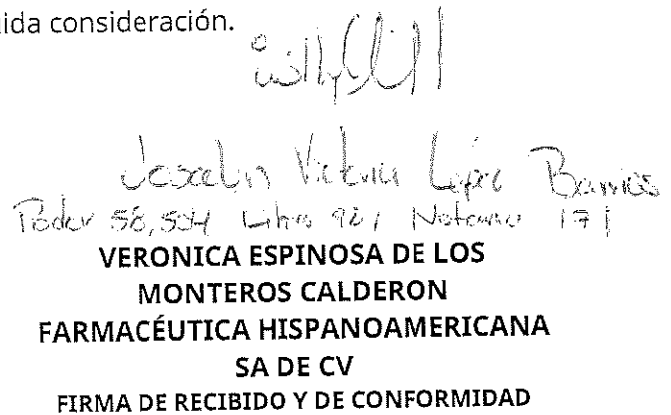 ida consideración.
Joscelin Victoria López Barrios
Poder 58,534 Libro 921 Notario 171
VERONICA ESPINOSA DE LOS
MONTEROS CALDERON
FARMACÉUTICA HISPANOAMERICANA
SA DE CV
FIRMA DE RECIBIDO Y DE CONFORMIDAD